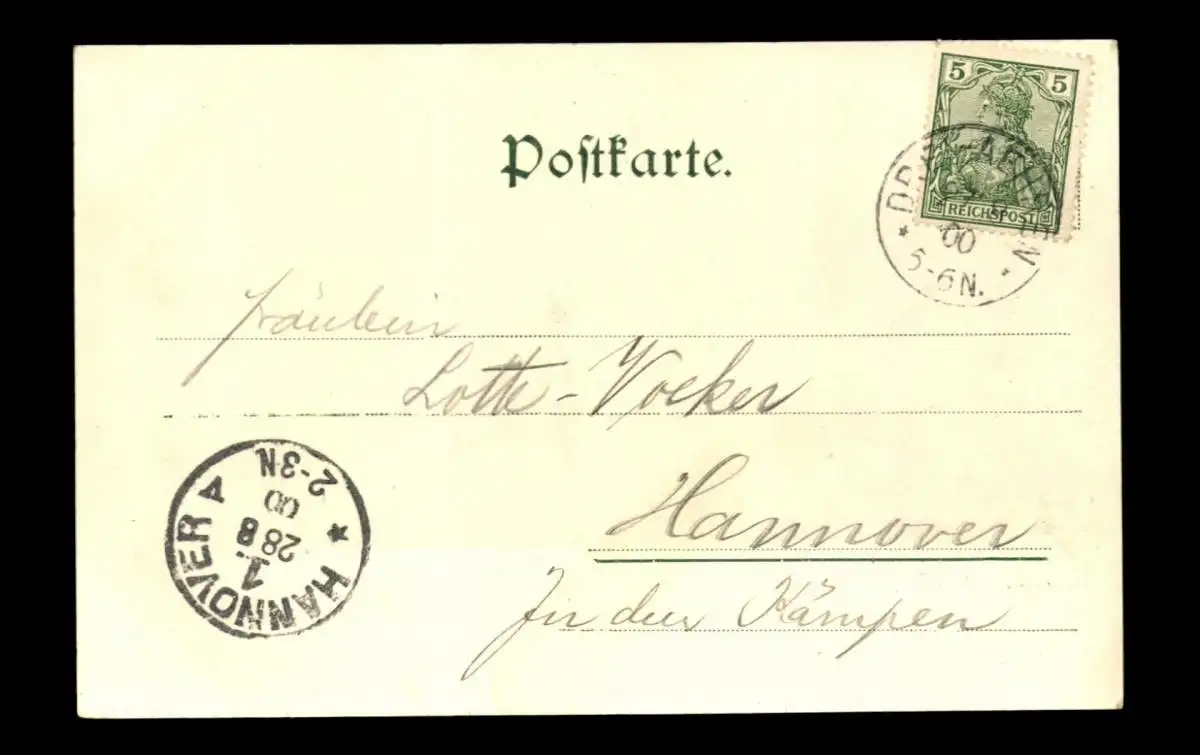 5 5
REICHSPOST
00
5-6N.
Postkarte.
Fräulein
Lotte Voeker
Hannover
In den Kämpen
HANNOVER
1.
28 8
00
2-3N